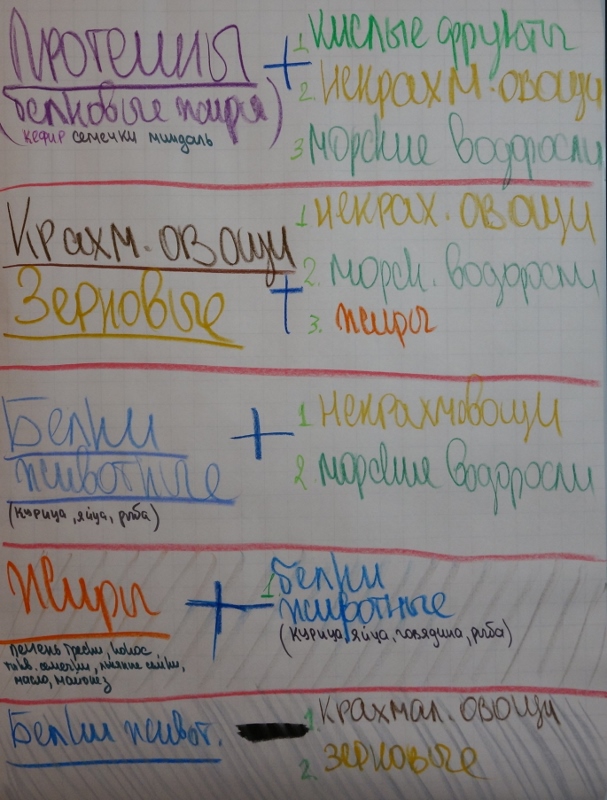 Протеины + 1. кислые фрукты
(белковые жиры) 2. некрахм. овощи
кефир семечки миндаль
3 морские водоросли
Крахм. овощи
Зерновые +
1 некрах. овощи
2. морск. водоросли
3. жиры
Белки
животные +
(курица, яйца, рыба)
1 некрахм овощи
2 морские водоросли
Жиры +
печень трески, кокос
тыкв. семечки, льняные семки,
масло, майонез
1 белки
животные
(курица, яйца, говядина, рыба)
Белки живот. –
1 крахмал. овощи
2. зерновые